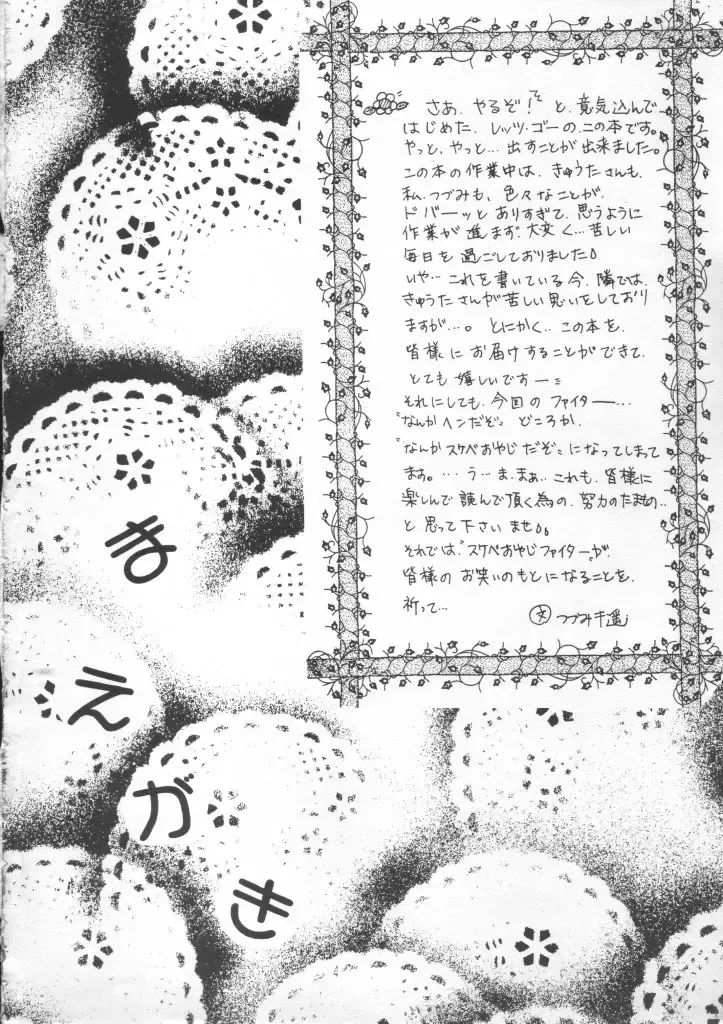 まえがき
さあ、やるぞ！と、意気込んで
はじめた、レッツ・ゴーの、この本です。
やっと、やっと…出すことが出来ました。
この本の作業中は、きゅうたさんも、
私、つづみも、色々なことが、
ドバーッとありすぎて、思うように
作業が進まず、大変く…苦しい
毎日を過ごしておりました。
いや…これを書いている今、隣では、
きゅうたさんが苦しい思いをしており
ますが…。とにかく、この本を、
皆様にお届けすることができて、
とても嬉しいですー
それにしても、今回のファイター…
"なんかヘンだぞ"どころか、
"なんかスケベおやじだぞ"になってしまって
ます。…う…ま、まぁ、これも、皆様に
楽しんで読んで頂く為の、努力のたまもの…
と思って下さいませ。
それでは、"スケベおやじファイター"が、
皆様のお笑いのもとになることを、
祈って…
文 つづみ遥